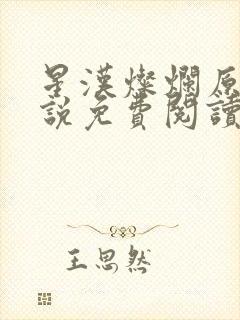 星漢燦爛原
說免費閱讀
王思然